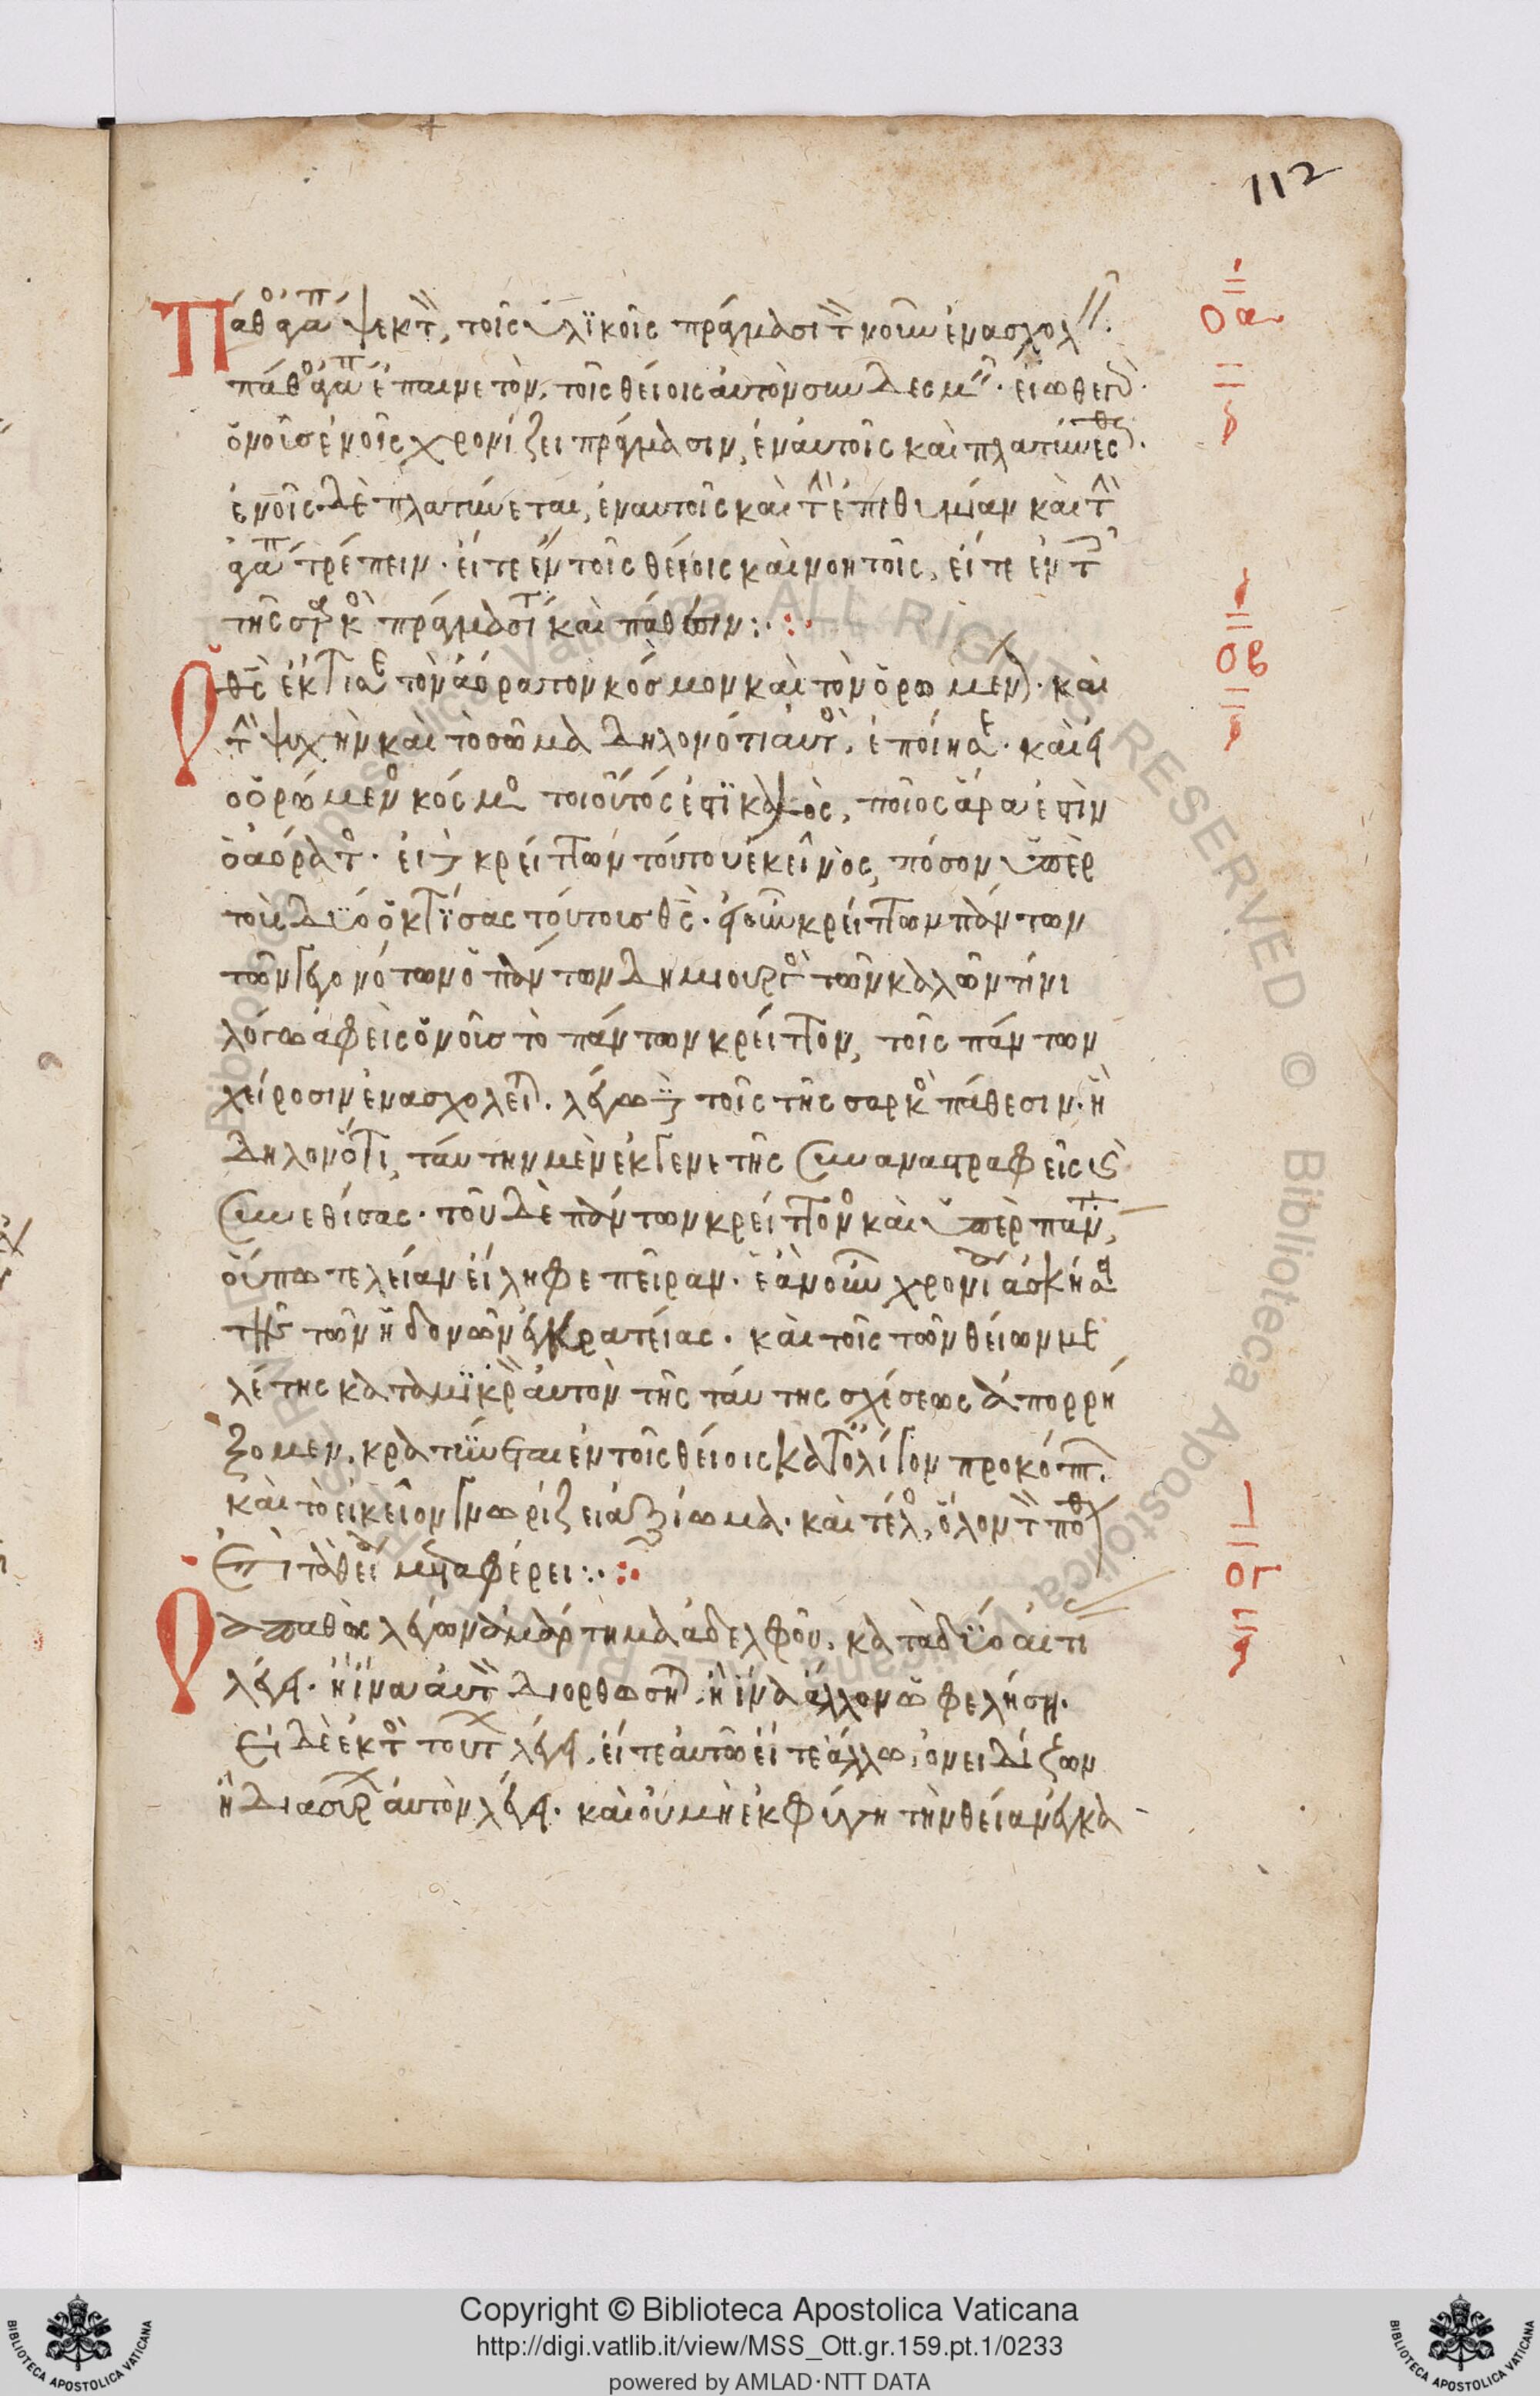 112
Πάθος ἀγάπης ψεκτὸν, τοῖς ὑλϊκοῖς πράγμασι τὸν νοῦν ἐνασχολεῖ.
πάθος ἀγάπης ἐπαινετὸν, τοῖς θείοις αὐτὸν συνδεσμεῖ. εἴωθε γὰρ
ὁ νοῦς ἐν οἷς χρονίζει πράγμασιν, ἐν αὐτοῖς καὶ πλατύνεσθαι.
ἐν οἷς δὲ πλατύνεται, ἐν αὐτοῖς καὶ τὴν ἐπιθυμίαν καὶ τὴν
ἀγάπην τρέπειν. εἴτε ἐν τοῖς θείοις καὶ νοητοῖς, εἴτε ἐν τοῖς
τῆς σαρκὸς πράγμασί τε καὶ πάθεσιν:
Ὁ θεὸς ἔκτισε τὸν ἀόρατον κόσμον καὶ τὸν ὁρώμενον. καὶ
τὴν ψυχὴν καὶ τὸ σῶμα δηλονότι αὐτὸς ἐποίησε. καὶ εἰ
ὁ ὁρώμενος κόσμος τοιοῦτός ἐστϊ καλὸς, ποῖος ἄρα ἐστὶν
ὁ ἀόρατος. εἰ δὲ κρείττων τούτου ἐκεῖνος, πόσον ὑπὲρ
τοὺς δϋό ὁ κτΐσας τούτους θεὸς. εἰ οὖν κρείττων πάντων
τῶν γεγονότων ὁ πάντων δημιουργὸς τῶν καλῶν τίνι
λόγω ἀφεὶς ὁ νοῦς τὸ πάντων κρεῖττον, τοῖς πάντων
χείροσιν ἐνασχολεῖται. λέγω δὴ τοῖς τῆς σαρκὸς πάθεσιν. ἢ
δηλονότι, ταύτη μὲν ἐκ γενετῆς συναναστραφεὶς καὶ
συνεθίσας. τοῦ δὲ πάντων κρείττονος καὶ ὑπὲρ πάντα,
οὔπω τελείαν εἴληφε πεῖραν. ἐὰν οὖν χρονία ἀσκήσει
τῆς τῶν ἡδονῶν ἐγκρατείας. καὶ τοῖς τῶν θείων με
λέτης κατὰ μϊκρὸν αὐτὸν τῆς ταύτης σχέσεως ἀπορρή
ξομεν. κρατΰνεται ἐν τοῖς θείοις κατολίγον προκόπτων.
καὶ τὸ οἰκεῖον γνωρίζει ἀξίωμα. καὶ τέλος, ὅλον τὸν πόθον
ἐπὶ τὸ θεῖον μεταφέρει:
Ὁ ἀπαθῶς λέγων ἁμάρτημα ἀδελφοῦ. κατὰ δϋό αἰτί
λέγει. ἢ ἵνα αὐτὸν διορθώσηται. ἢ ἵνα ἄλλον ὠφελήση.
εἰ δὲ ἐκτὸς τούτων λέγει. εἴτε αὐτῶ εἴτε ἄλλω. ὀνειδίζων
ἢ διασύρων αὐτὸν λέγει. καὶ οὐ μὴ ἐκφύγη τὴν θείαν ἐγκα-
οα
οβ
ογ
Copyright © Biblioteca Apostolica Vaticana
http://digi.vatlib.it/view/MSS_Ott.gr.159.pt.1/0233
powered by AMLAD·NTT DATA
BIBLIOTECA APOSTOLICA VATICANA
BIBLIOTECA APOSTOLICA VATICANA